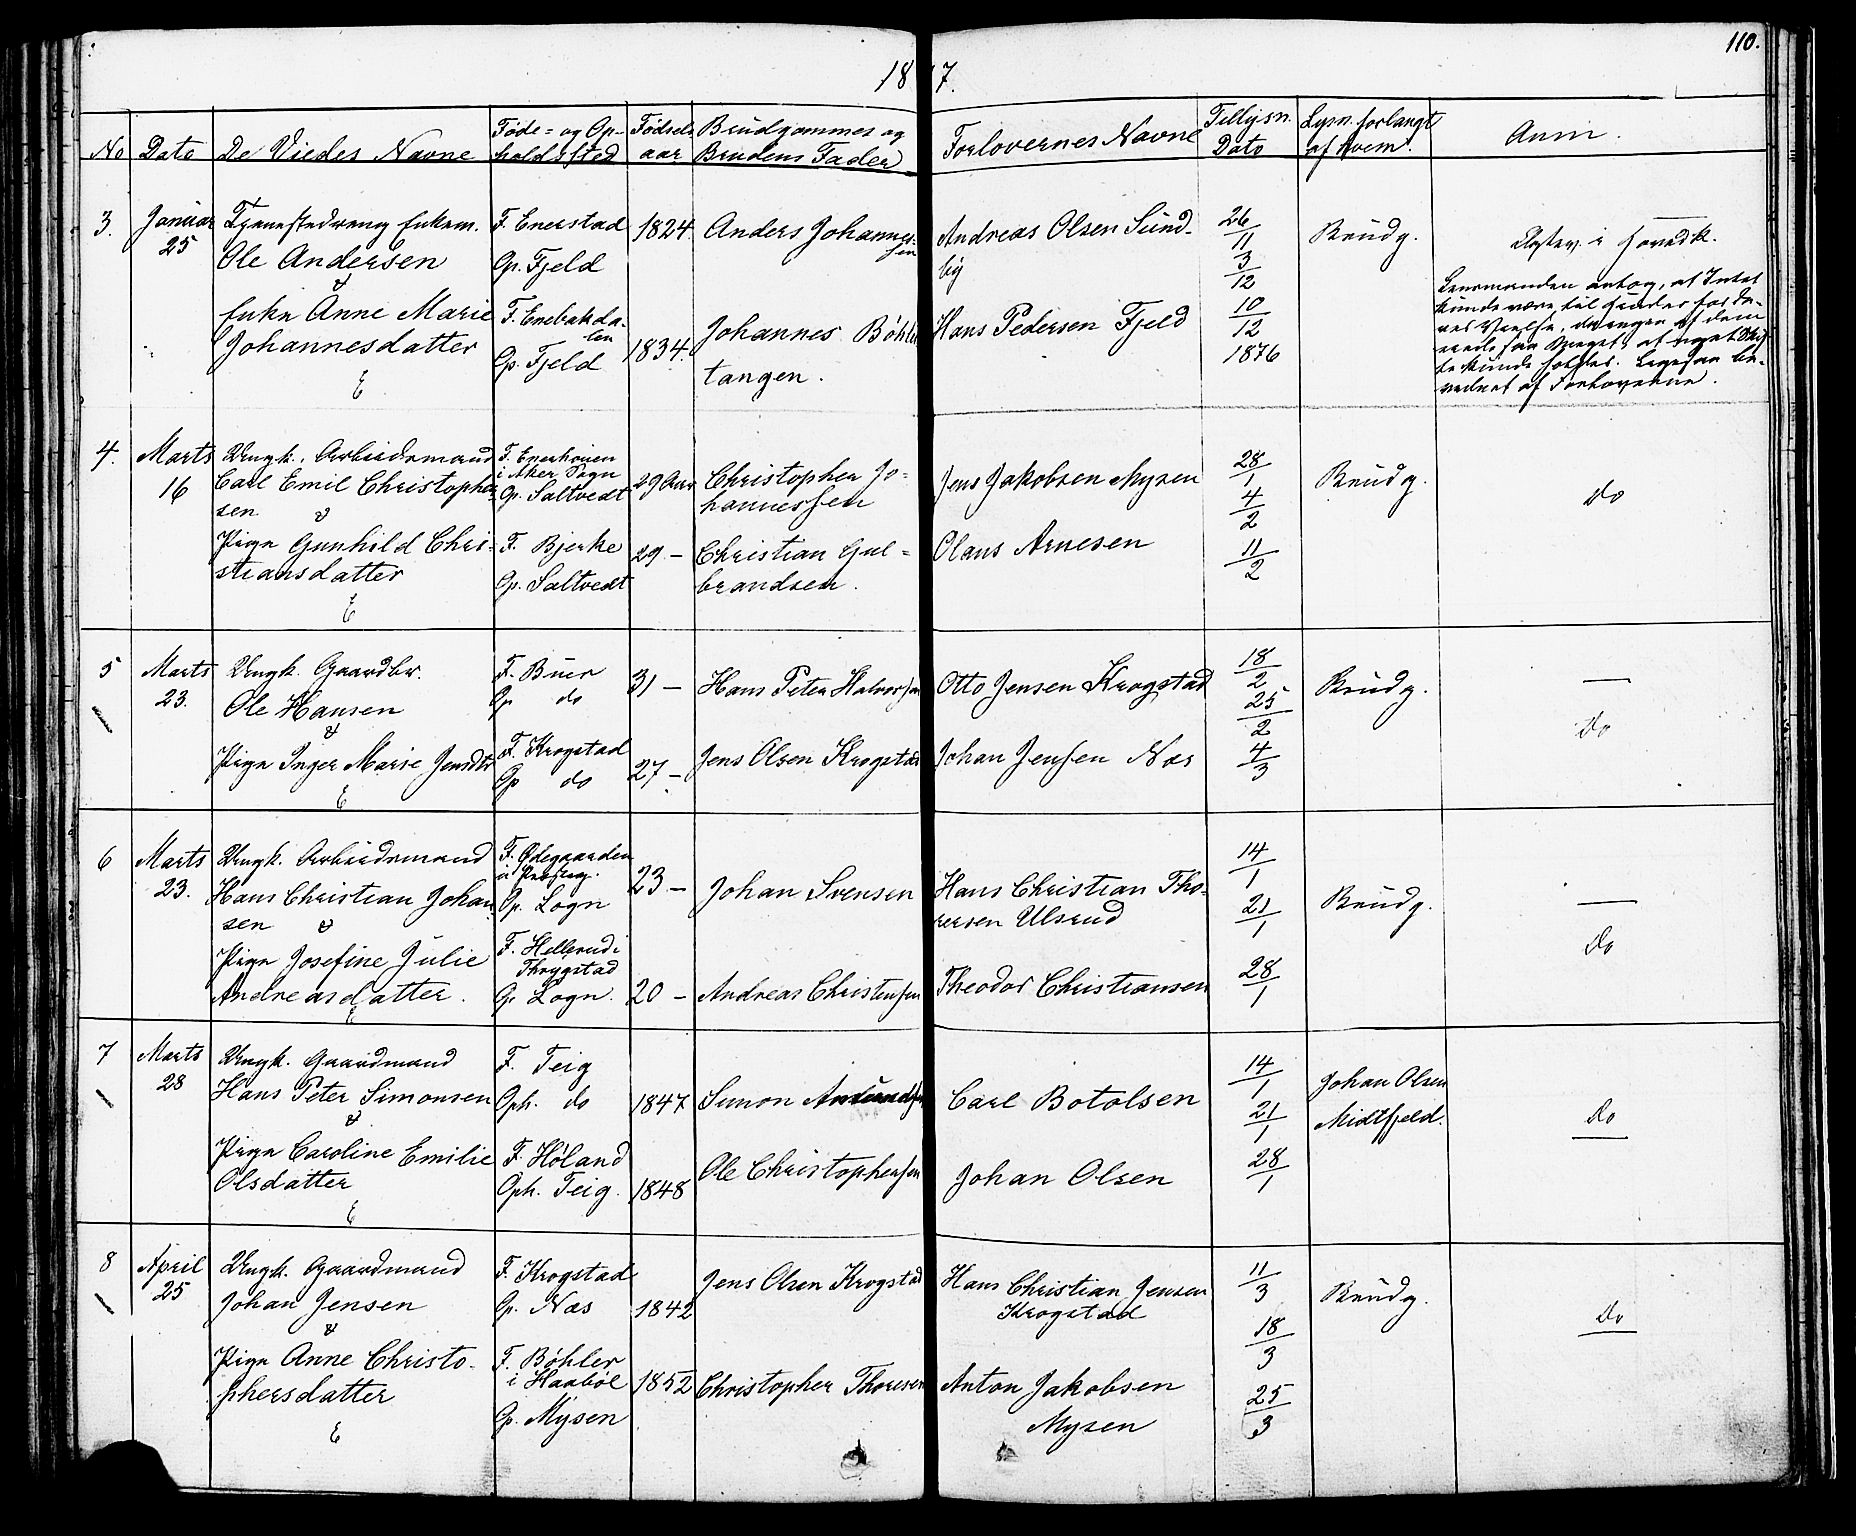 110.
18 7.
No Dato De Viedes Navne Føde= og Op-
holdssted Fødsels
aar Brudgommes og
Brudens Fader Forlovernes Navne Tillysn.
Dato Lysn. forlangt
af hvem. Anm.
3. Januar
25
Tjenestedreng Enkem.
Ole Andersen
&
Enke Anne Marie
Johannesdatter
E
F. Enerstad
Op. Fjeld
F. Enebakda-
len
Op. Fjeld
1824.
1834.
Anders Johannes-
sen
Johannes Böhler
tangen.
Andreas Olsen Sünd-
by
Hans Pedersen Fjeld
26/11
3/12
10/12
1876
Brudg.
i Hovedk.
Lensmanden antog, at Intet
kunde være til Hinder for De-
res Vielse, da ingen af dem
eiede saa Meget, at noget Skif-
te kunde holdes. Ligesaa be-
vidnet af Forloverne.
4. Marts
16
Ungk. Arbeidsmand
Carl Emil Christopher-
sen &
Pige Gunhild Chri-
stiansdatter
E
F. Enerhouen
i Aker Sogn
Op. Saltvedt
F. Bjerke
Op. Saltvedt
29 Aar
29 -
Christopher Jo=
hannessen
Christian Gul=
brandsen.
Jens Jakobsen Mysen
Olaus Arnesen
28/1
4/2
11/2
Brudg.
do
5 Marts
23.
Ungk. Gaardbr.
Ole Hansen
&
Pige Inger Marie Jensdtr
E
F. Buer
Op do
F. Krogstad
Op do
31 -
27 -
Hans Peter Halvorsen
Jens Olsen Krogstad
Otto Jensen Krogstad
Johan Jensen Næs
18/2
25/2
4/3
Brudg.
do
6 Marts
23.
Ungk. Arbeidsmand
Hans Christian Johan
sen &
Pige Josefine Julie
Andreasdatter.
E
F. Ødegaarden
Op. Sogn
F. Hellerud i
Thrygstad
Op. Sogn.
23 -
20 -
Johan Svensen
Andreas Christensen
Hans Christian Tho-
rersen Ulsrud
Theodor Christiansen
14/1
21/1
28/1
Brudg.
do
7 Marts
28
Ungk. Gaardmand
Hans Peter Simonsen
&
Pige Caroline Emilie
Olsdatter
E
F. Teig
Oph. do
F. Høland
Oph. Teig.
1847
1848
Simon Amundsen
Ole Christophersen
Carl Botolsen
Johan Olsen
14/1
21/1
28/1
Johan Olsen
Midtfjeld.
do
8 April
25
Ungk. Gaardmand
Johan Jensen
&
Pige Anne Christo-
phersdatter
E
F. Krogstad
Op. Næs
F. Böhler
i Haaböl
Op. Mysen
1842
1852
Jens Olsen Krogstad
Christopher Thoresen
Hans Christian Jensen
Krogstad
Anton Jakobsen
Mysen
11/3
18/3
25/3
Brudg.
do